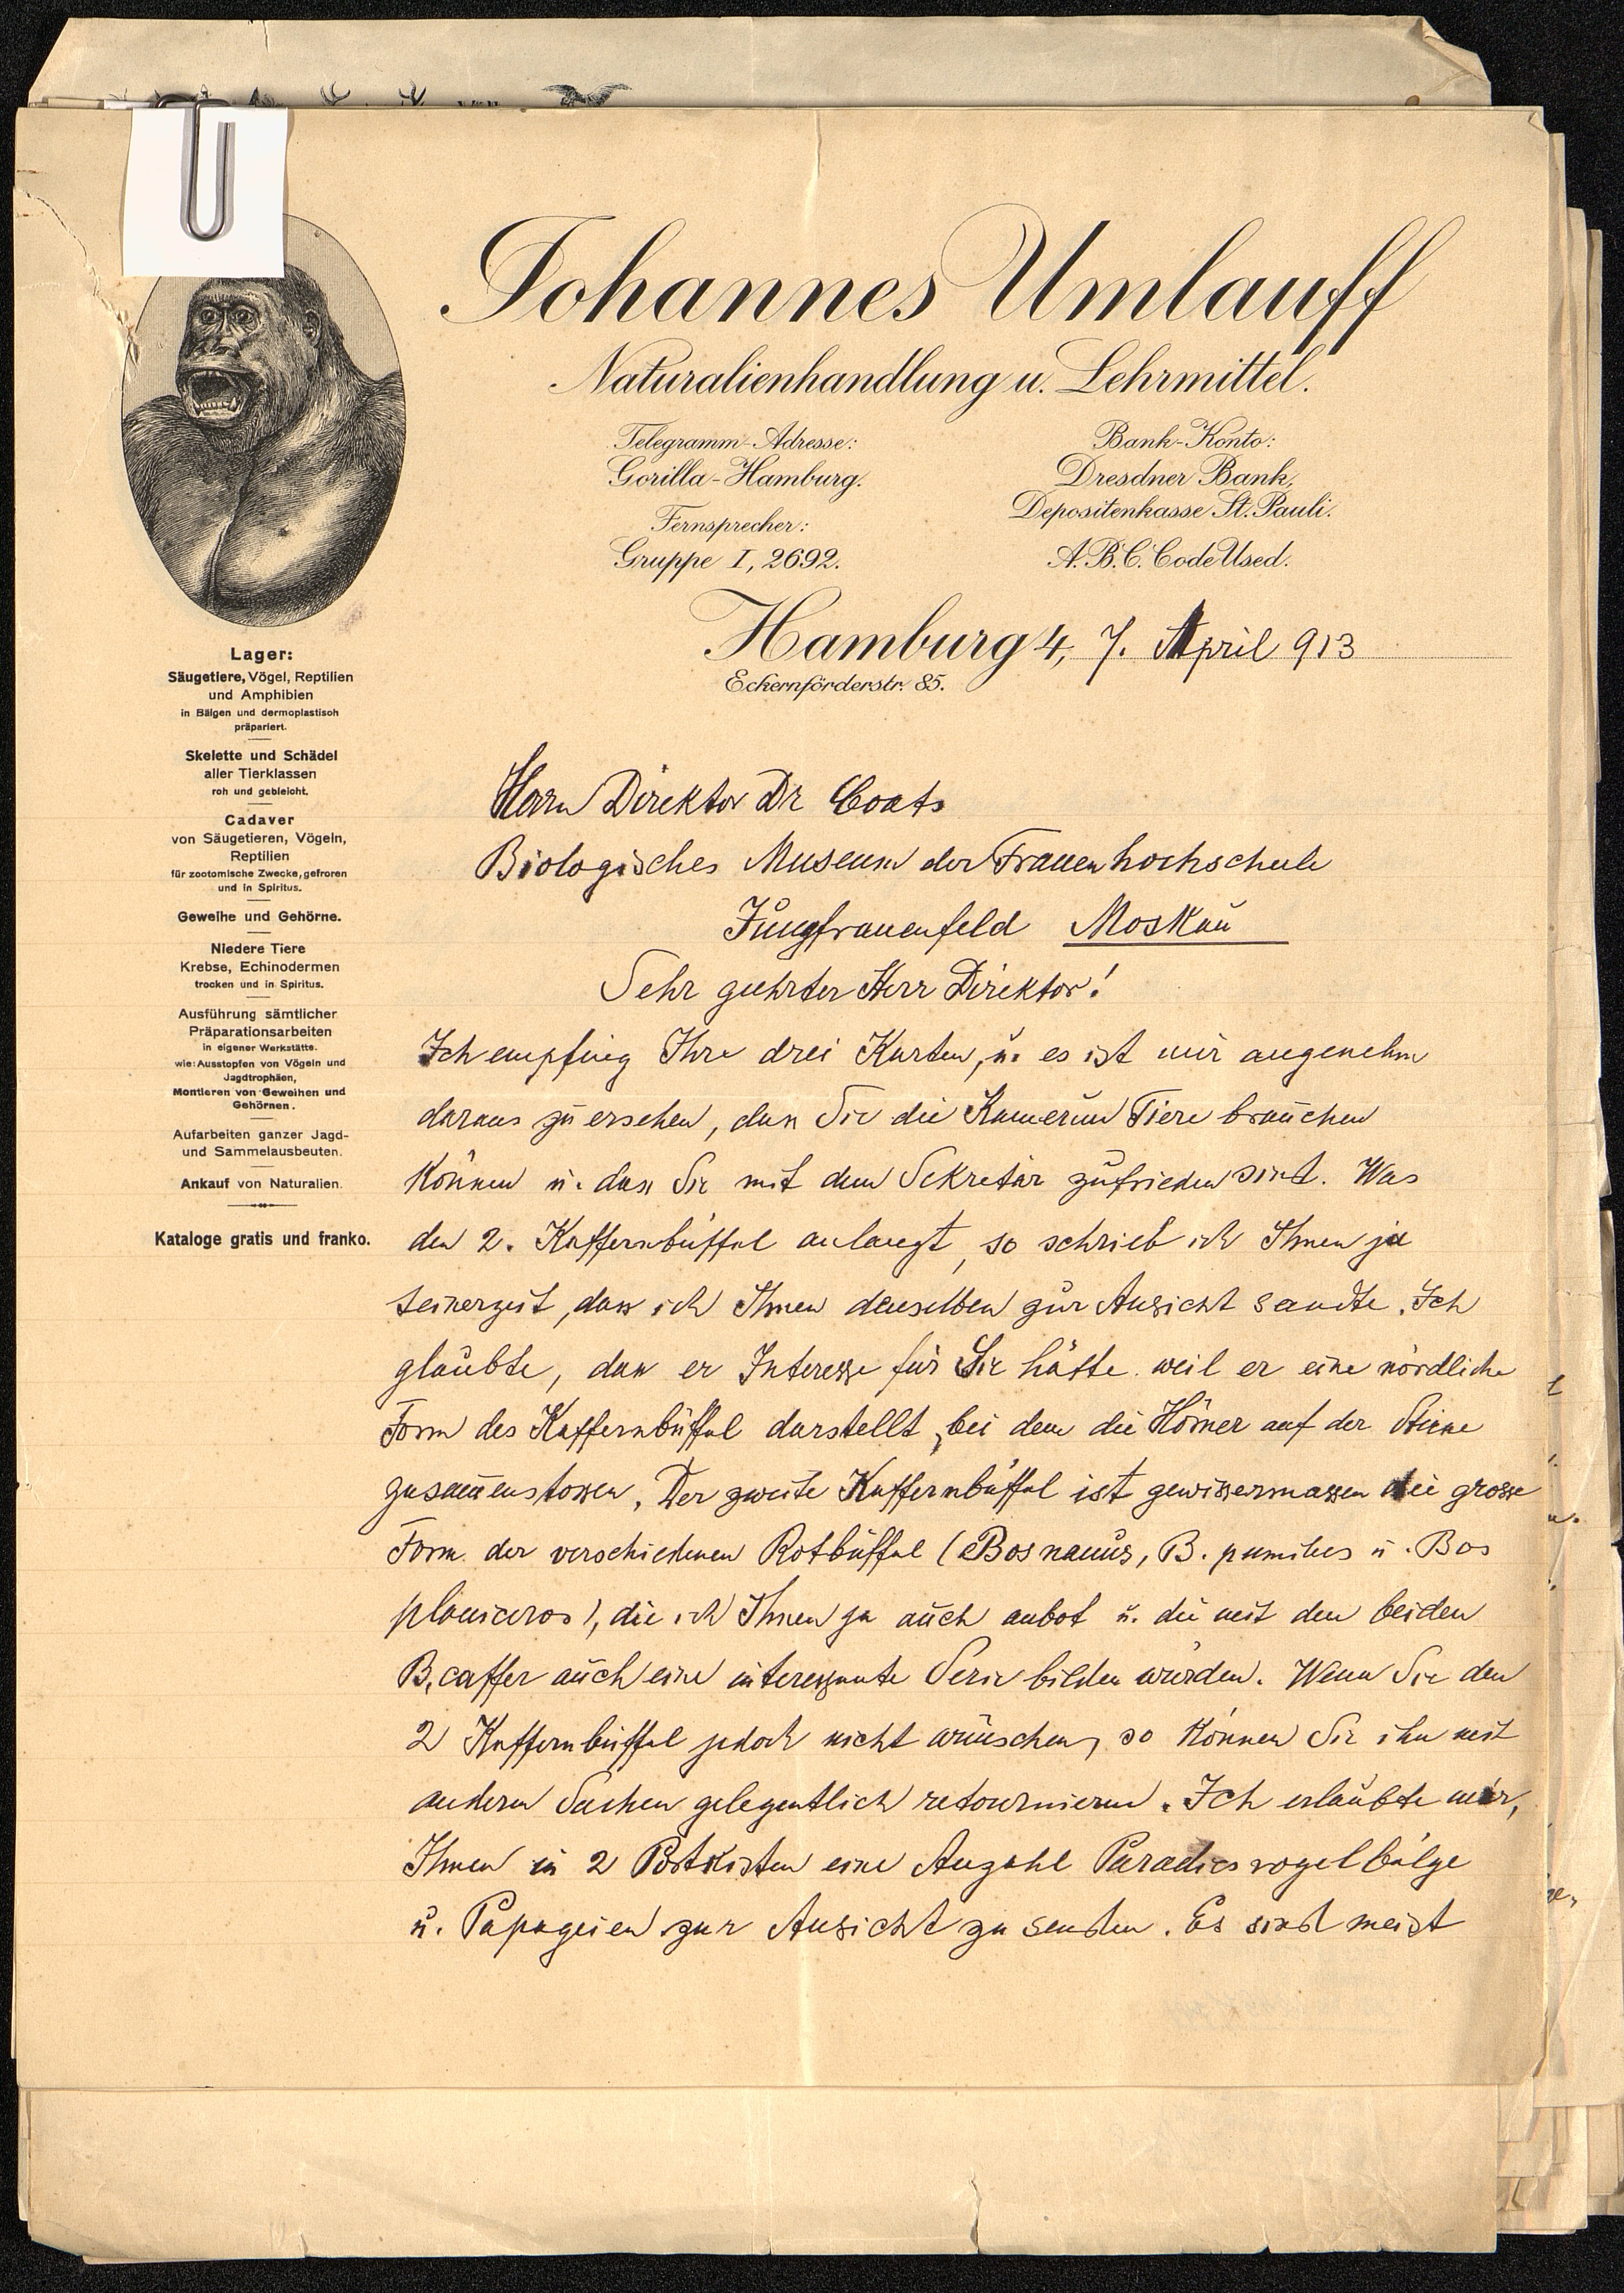 Johannes Umlauff
Naturalienhandlung u. Lehrmittel.
Telegramm-Adresse:
Gorilla-Hamburg.
Fernsprecher:
Gruppe I, 2692.
Bank-Konto:
Dresdner Bank,
Depositenkasse St. Pauli.
A.B.C. Code Used.
Hamburg 4, 7. April 913
Eckernförderstr. 85.
Lager:
Säugetiere, Vögel, Reptilien
und Amphibien
in Bälgen und dermoplastisch
präpariert.
Skelette und Schädel
aller Tierklassen
roh und gebleicht.
Cadaver
von Säugetieren, Vögeln,
Reptilien
für zootomische Zwecke, gefroren
und in Spiritus.
Geweihe und Gehörne.
Niedere Tiere
Krebse, Echinodermen
trocken und in Spiritus.
Ausführung sämtlicher
Präparationsarbeiten
in eigener Werkstätte.
wie: Ausstopfen von Vögeln und
Jagdtrophäen,
Montieren von Geweihen und
Gehörnen.
Aufarbeiten ganzer Jagd-
und Sammelausbeuten.
Ankauf von Naturalien.
Kataloge gratis und franko.
Herrn Direktor Dr Coats
Biologisches Museum der Frauenhochschule
Jungfrauenfeld Moskau
Sehr geehrter Herr Direktor!
Ich empfing Ihre drei Karten, u. es ist mir angenehm
daraus zu ersehen, dass Sie die Kamerun Tiere brauchen
können u. dass Sie mit dem Sekretär zufrieden sind. Was
den 2. Kaffernbüffel anlangt, so schrieb ich Ihnen ja
seinerzeit, dass ich Ihnen denselben zur Ansicht sandte. Ich
glaubte, dass er Interesse für Sie hätte weil er eine nördliche
Form des Kaffernbüffel darstellt, bei dem die Hörner auf der Stirne
zusam̅enstossen. Der zweite Kaffernbüffel ist gewissermassen die grosse
Form der verschiedenen Rotbüffel (Bos nanus, B. pumilus u. Bos
planiceros), die ich Ihnen ja auch anbot u. die mit den beiden
B. caffer auch eine interessante Serie bilden würden. Wenn Sie den
2 Kaffernbüffel jedoch nicht wünschen, so können Sie ihn mit
andern Sachen gelegentlich retournieren. Ich erlaubte mir,
Ihnen in 2 Postkisten eine Anzahl Paradiesvogelbälge
u. Papageien zur Ansicht zu senden. Es sind meist